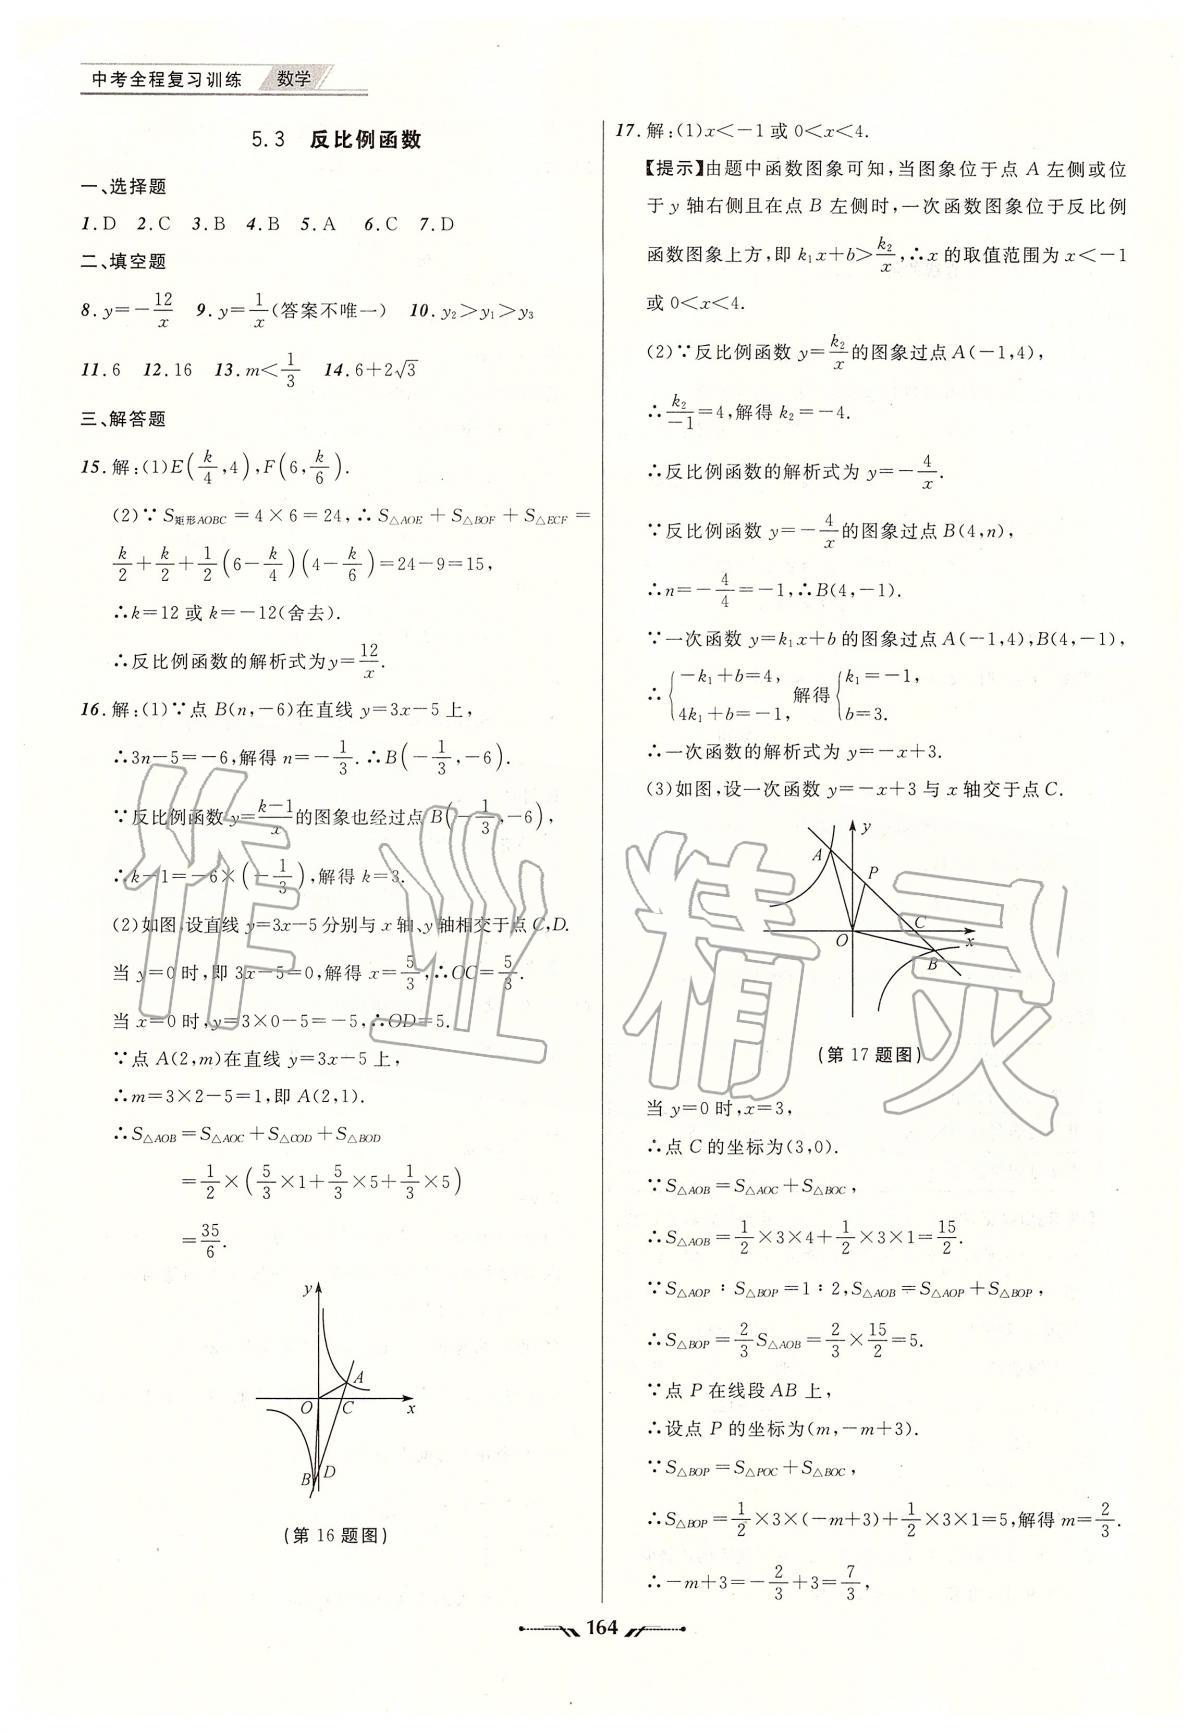 中考全程复习训练 数学
5.3 反比例函数
一、选择题
1.D 2.C 3.B 4.B 5.A 6.C 7.D
二、填空题
8.y=-12/x 9.y=1/x(答案不唯一) 10.y₂>y₁>y₃
11.6 12.16 13.m<1/3 14.6+2√3
三、解答题
15.解:(1)E(k/4,4),F(6,k/6).
(2)∵S矩形AOBC=4×6=24,∴S△AOE+S△BOF+S△ECF=
k/2+k/2+1/2(6-k/4)(4-k/6)=24-9=15,
∴k=12或k=-12(舍去).
∴反比例函数的解析式为y=12/x.
16.解:(1)∵点B(n,-6)在直线y=3x-5上,
∴3n-5=-6,解得n=-1/3.∴B(-1/3,-6).
∵反比例函数y=(k-1)/x的图象也经过点B(-1/3,-6),
∴k-1=-6×(-1/3),解得k=3.
(2)如图,设直线y=3x-5分别与x轴、y轴相交于点C,D.
当y=0时,即3x-5=0,解得x=5/3,∴OC=5/3.
当x=0时,y=3×0-5=-5,∴OD=5.
∵点A(2,m)在直线y=3x-5上,
∴m=3×2-5=1,即A(2,1).
∴S△AOB=S△AOC+S△COD+S△BOD
=1/2×(5/3×1+5/3×5+1/3×5)
=35/6.
y
A
O C x
B D
(第16题图)
17.解:(1)x<-1或0<x<4.
【提示】由题中函数图象可知,当图象位于点A左侧或位
于y轴右侧且在点B左侧时,一次函数图象位于反比例
函数图象上方,即k₁x+b>k₂/x,∴x的取值范围为x<-1
或0<x<4.
(2)∵反比例函数y=k₂/x的图象过点A(-1,4),
∴k₂/-1=4,解得k₂=-4.
∴反比例函数的解析式为y=-4/x.
∵反比例函数y=-4/x的图象过点B(4,n),
∴n=-4/4=-1,∴B(4,-1).
∵一次函数y=k₁x+b的图象过点A(-1,4),B(4,-1),
∴{-k₁+b=4, 4k₁+b=-1, 解得{k₁=-1, b=3.
∴一次函数的解析式为y=-x+3.
(3)如图,设一次函数y=-x+3与x轴交于点C.
y
A
P
O C x
B
(第17题图)
当y=0时,x=3,
∴点C的坐标为(3,0).
∵S△AOB=S△AOC+S△BOC,
∴S△AOB=1/2×3×4+1/2×3×1=15/2.
∵S△AOP:S△BOP=1:2,S△AOB=S△AOP+S△BOP,
∴S△BOP=2/3S△AOB=2/3×15/2=5.
∵点P在线段AB上,
∴设点P的坐标为(m,-m+3).
∵S△BOP=S△POC+S△BOC,
∴S△BOP=1/2×3×(-m+3)+1/2×3×1=5,解得m=2/3.
∴-m+3=-2/3+3=7/3,
164
作业精灵